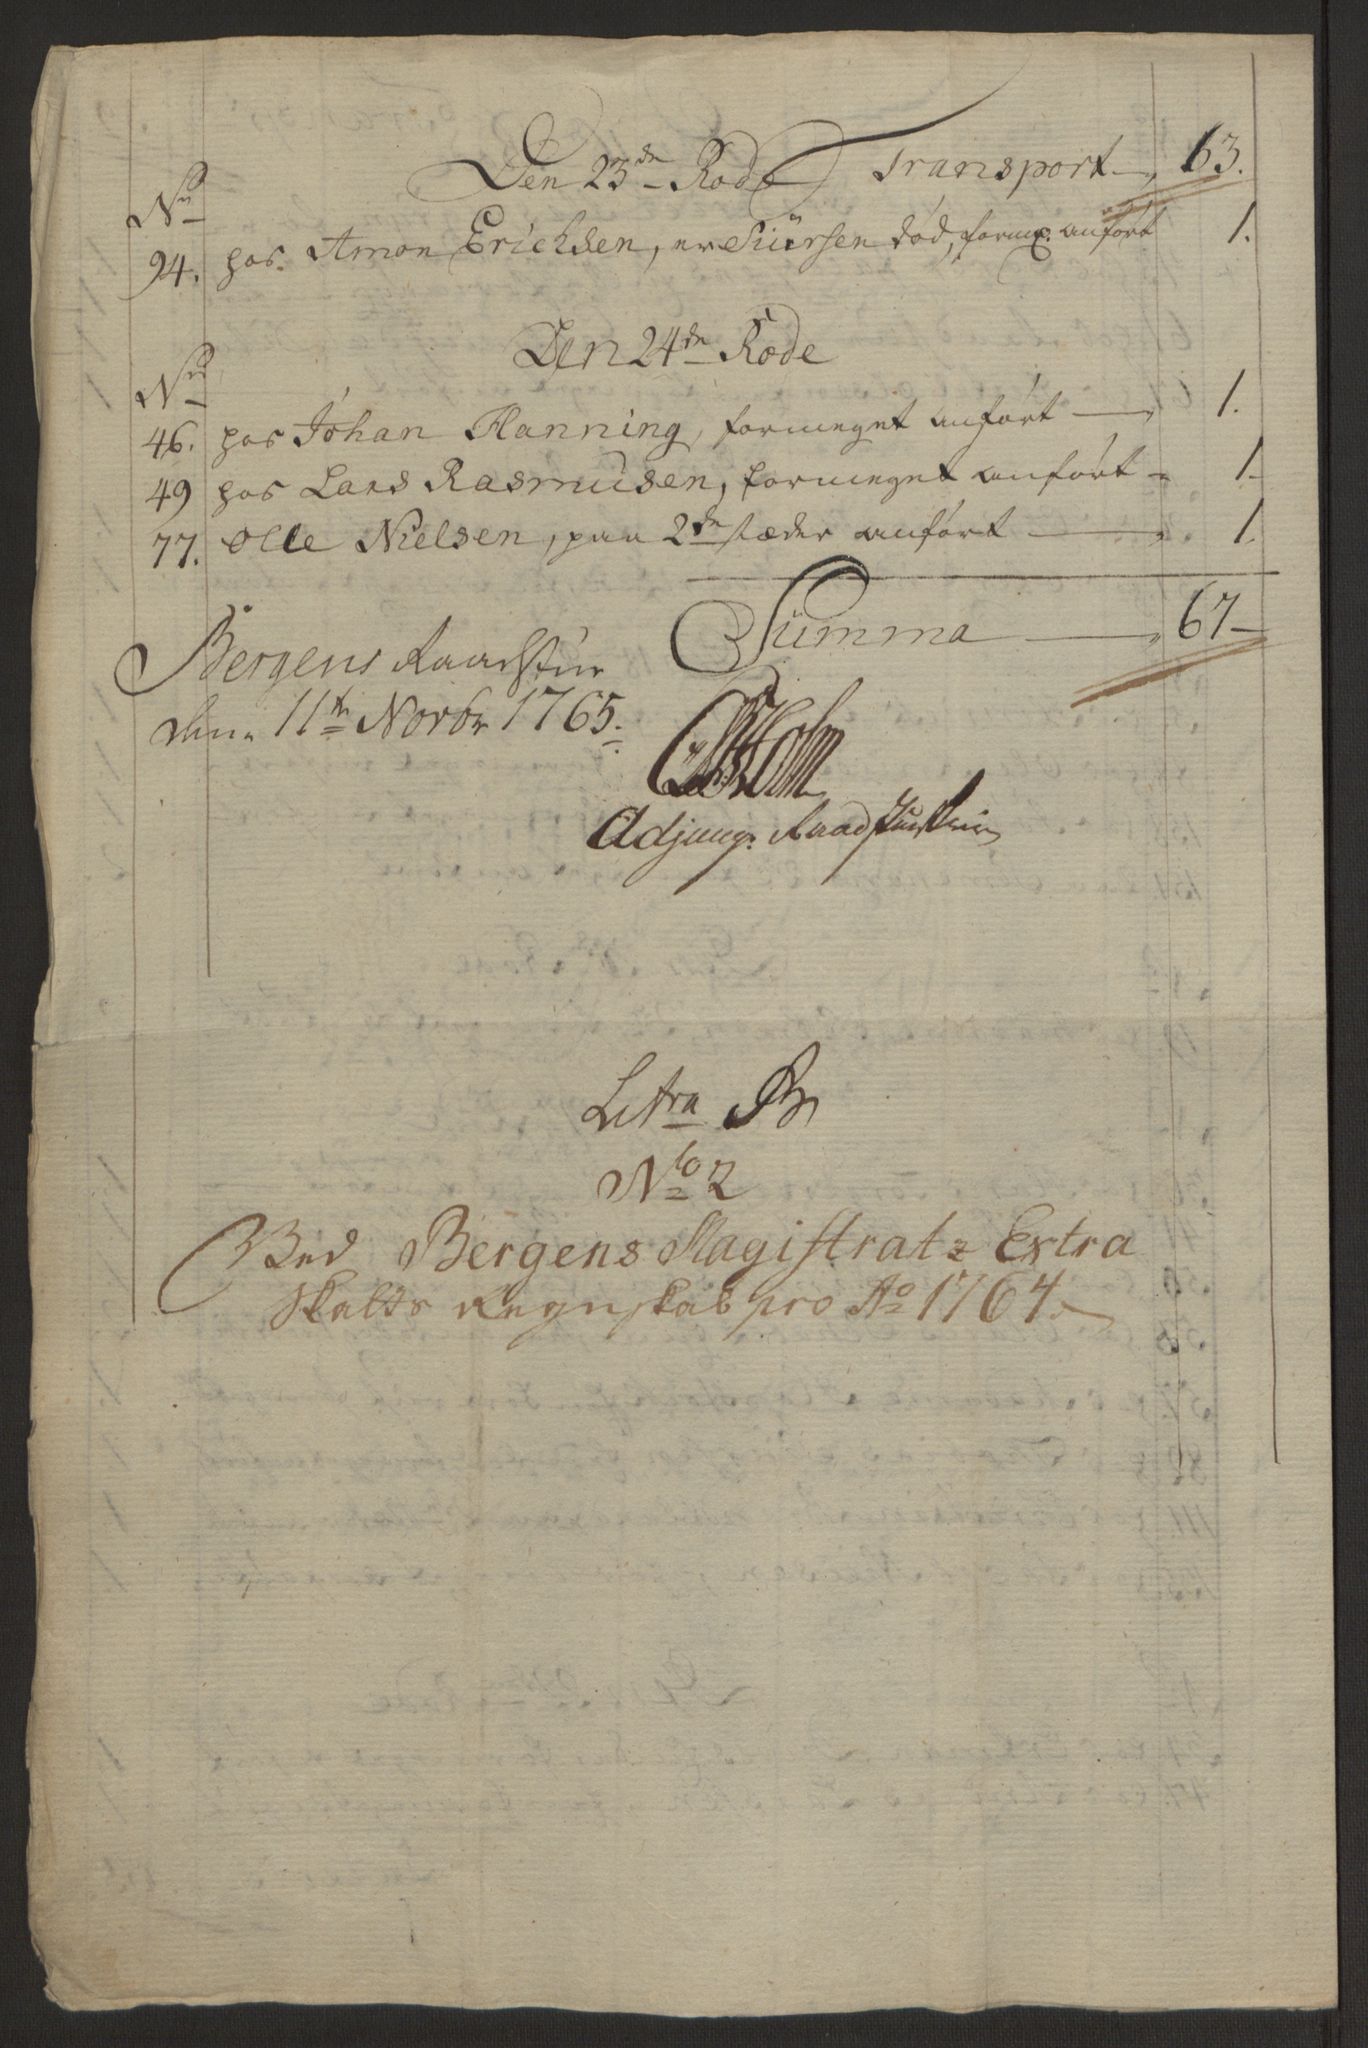 Den 23de Rode Transport 63.
No
94. hos Amon Erichsen, er Siürsen død, form: anført 1.
Den 24de Rode
No
46. hos Johan Hanning, formeget anført 1.
49 hos Lars Rasmusen, formeget anført 1.
77. Olle Nielsen, paa 2de stæder anført 1.
Summa 67
Bergens Raadstue
den 11te Novbr 1765.
Holm
Adjung: Raadstueskriver
Litra B
No 2
Ved Bergens Magistratz Extra
Skatts Regnskab pro Ao 1764.